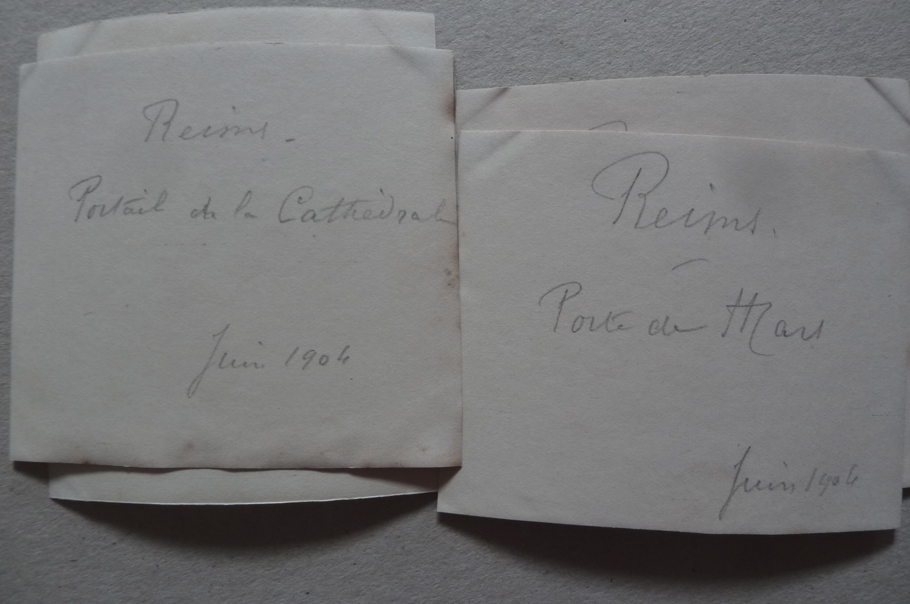 Reims.
Portail de la Cathédrale
Juin 1904
Reims.
Porte de Mars
Juin 1904